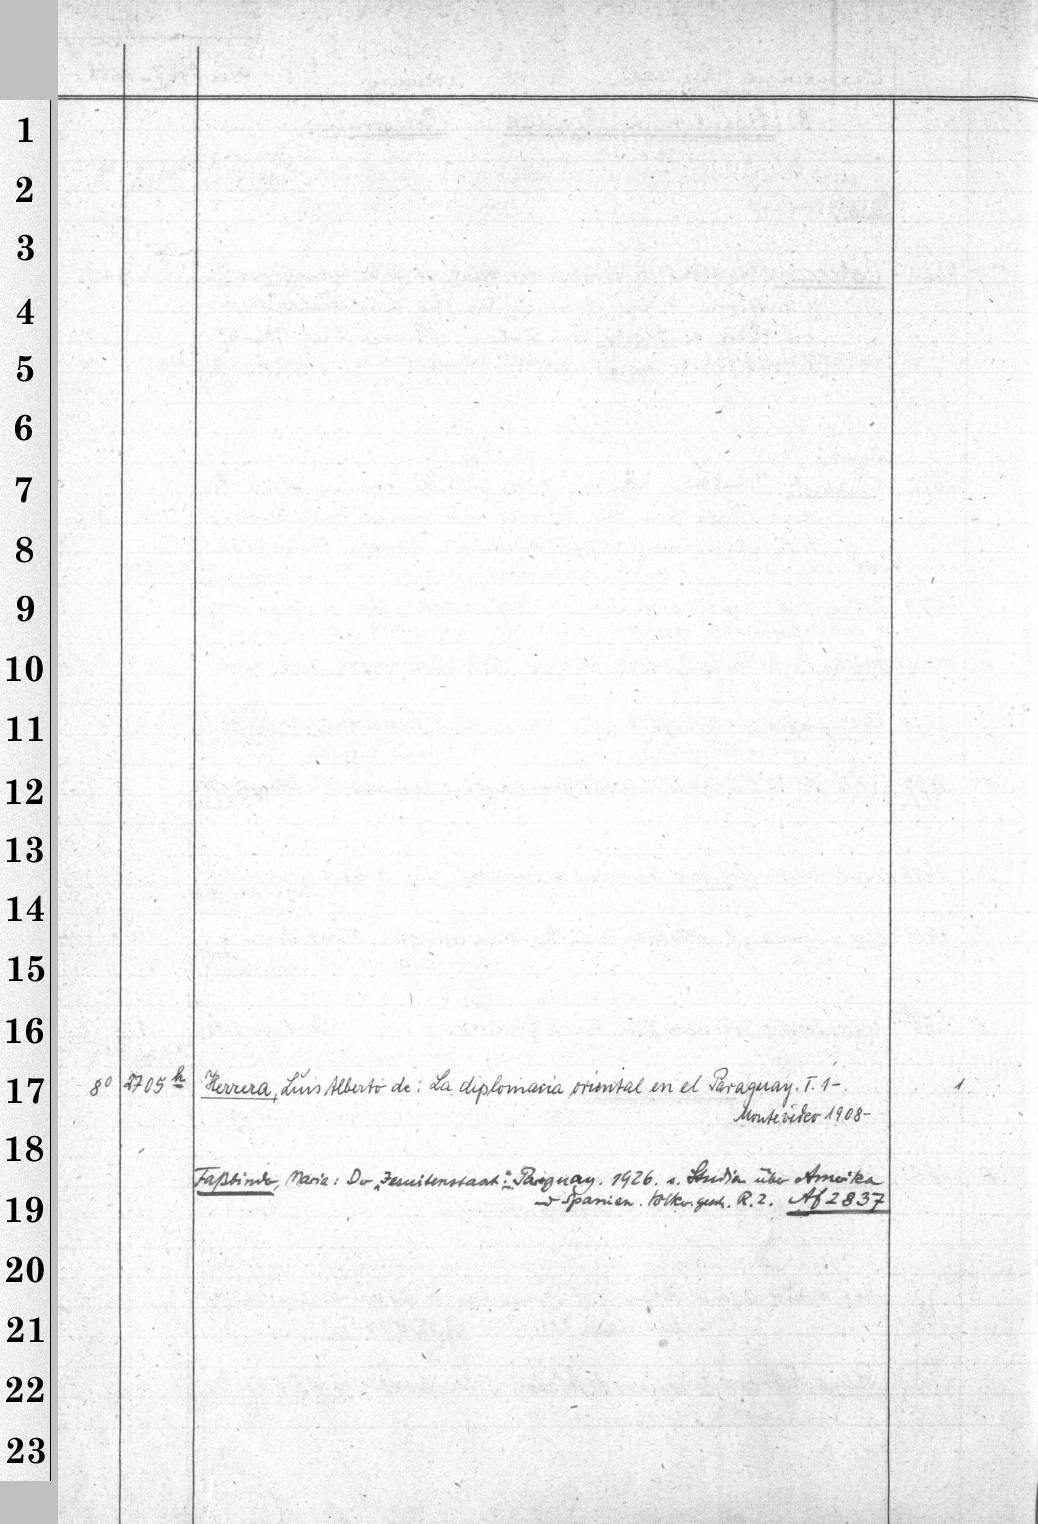 1
2
3
4
5
6
7
8
9
10
11
12
13
14
15
16
17
8° 2705 h Herrera, Luis Alberto de: La diplomacia oriental en el Paraguay. T. 1-. 1
Montevideo 1908-
18
Faßbinder, Maria: Der „Jesuitenstaat" Paraguay. 1926. s. Studien über Amerika
19
u Spanien. Völk.-gesch. R. 2. Af 2837
20
21
22
23